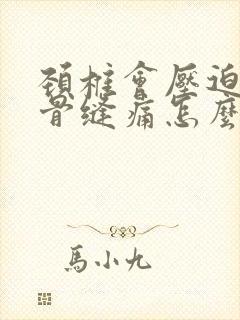 頚椎會壓迫
骨縫痛怎麼
馬小九